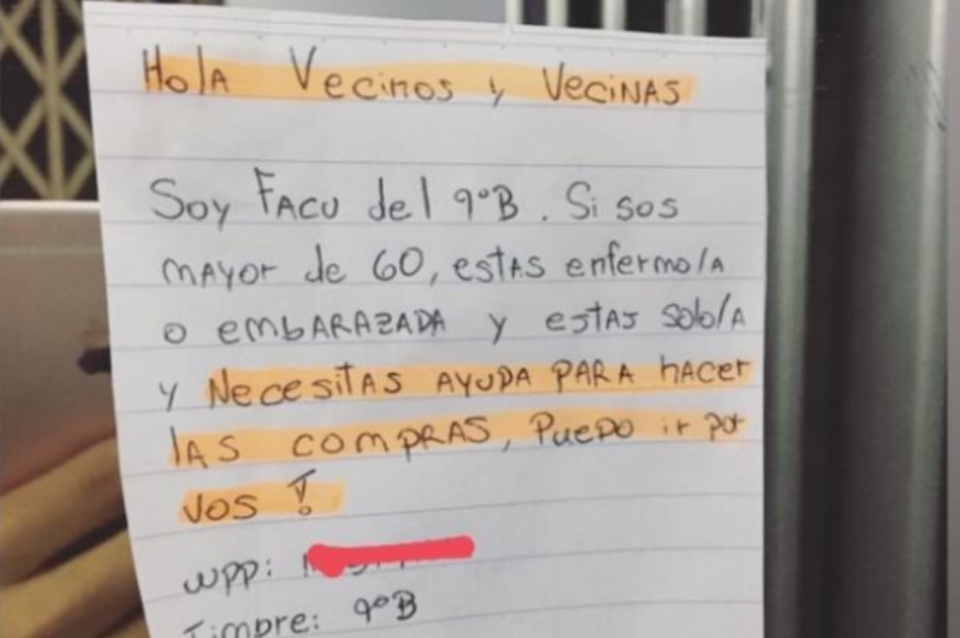 Hola Vecinos y Vecinas
Soy Facu del 9°B. Si sos
mayor de 60, estas enfermo/a
o embarazada y estas solo/a
y necesitas ayuda para hacer
las compras, Puedo ir por
vos!
wpp:
Timbre: 9°B